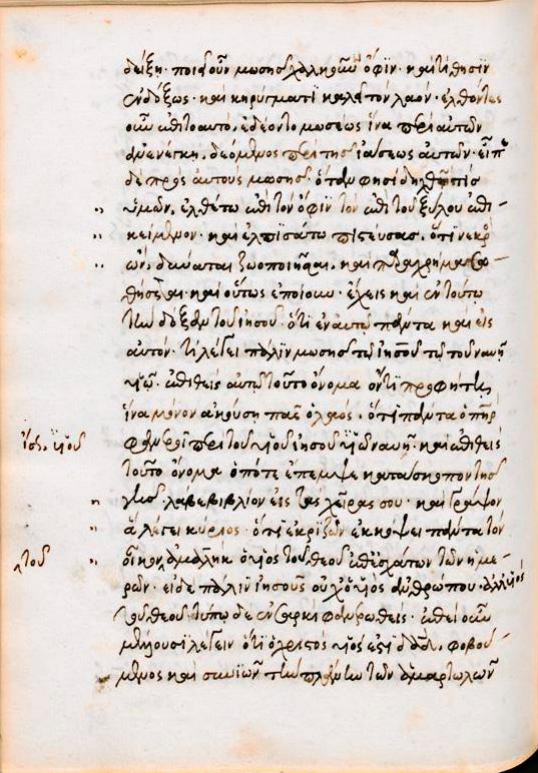 δείξη· ποιεῖ οὖν μωσῆς χαλκοῦν ὄφιν· καὶ τίθησιν
ἐνδόξως· καὶ κηρύγματι καλεῖ τὸν λαόν· ἐλθόντες
οὖν ἐπὶ τὸ αὐτὸ, ἐδέοντο μωσέως ἵνα περὶ αὐτῶν
ἀνενέγκη, δεόμενος περὶ τῆς ἰάσεως αὐτῶν· εἶπε
δὲ πρὸς αὐτοὺς μωσῆς· ὅταν φησὶ δηχθῆ τίς
ὑμῶν, ἐλθέτω ἐπὶ τὸν ὄφιν τὸν ἐπὶ τοῦ ξύλου ἐπι-
κείμενον· καὶ ἐλπισάτω πιστεύσας, ὅτι νεκρὸς
ὢν, δύναται ζωοποιῆσαι, καὶ παραχρῆμα σω-
θήσεται· καὶ οὕτως ἐποίουν· ἔχεις καὶ ἐν τούτω
τὴν δόξαν τοῦ ἰησοῦ· ὅτι ἐν αὐτῶ πάντα καὶ εἰς
αὐτόν· τί λέγει πάλιν μωσῆς τῶ ἰησοῦ τῶ τοῦ ναυῆ
υἱῶ· ἐπιθεὶς αὐτῶ τοῦτο ὄνομα ὄντι προφήτη,
ἵνα μόνον ἀκούση πᾶς ὁ λαός· ὅτι πάντα ὁ πὴρ
φανεροῖ περὶ τοῦ υἱοῦ ἰησοῦ υἱῶ ναυῆ· καὶ ἐπιθεὶς
τοῦτο ὄνομα ὁπότε ἔπεμψε κατάσκοπον τῆς
γῆς· λάβε βιβλίον εἰς τὰς χεῖρας σου· καὶ γράψον
ἃ λέγει κύριος· ὅτι ἐκριζῶν ἐκκόψει πάντα τὸν
οἶκον ἀμαλὴκ ὁ υἱὸς τοῦ θεοῦ ἐπ' ἐσχάτων τῶν ἡμε-
ρῶν· εἶδε πάλιν ἰησοῦς οὐχ ὁ υἱὸς ἀνθρώπου· ἀλλ' υἱὸς
τοῦ θεοῦ τύπω δὲ ἐν σαρκὶ φανερωθείς· ἐπεὶ οὖν
μέλλουσι λέγειν ὅτι ὁ χριστὸς υἱός ἐστι δαδ, φοβού-
μενος καὶ συνιῶν τὴν πλάνην τῶν ἁμαρτωλῶν